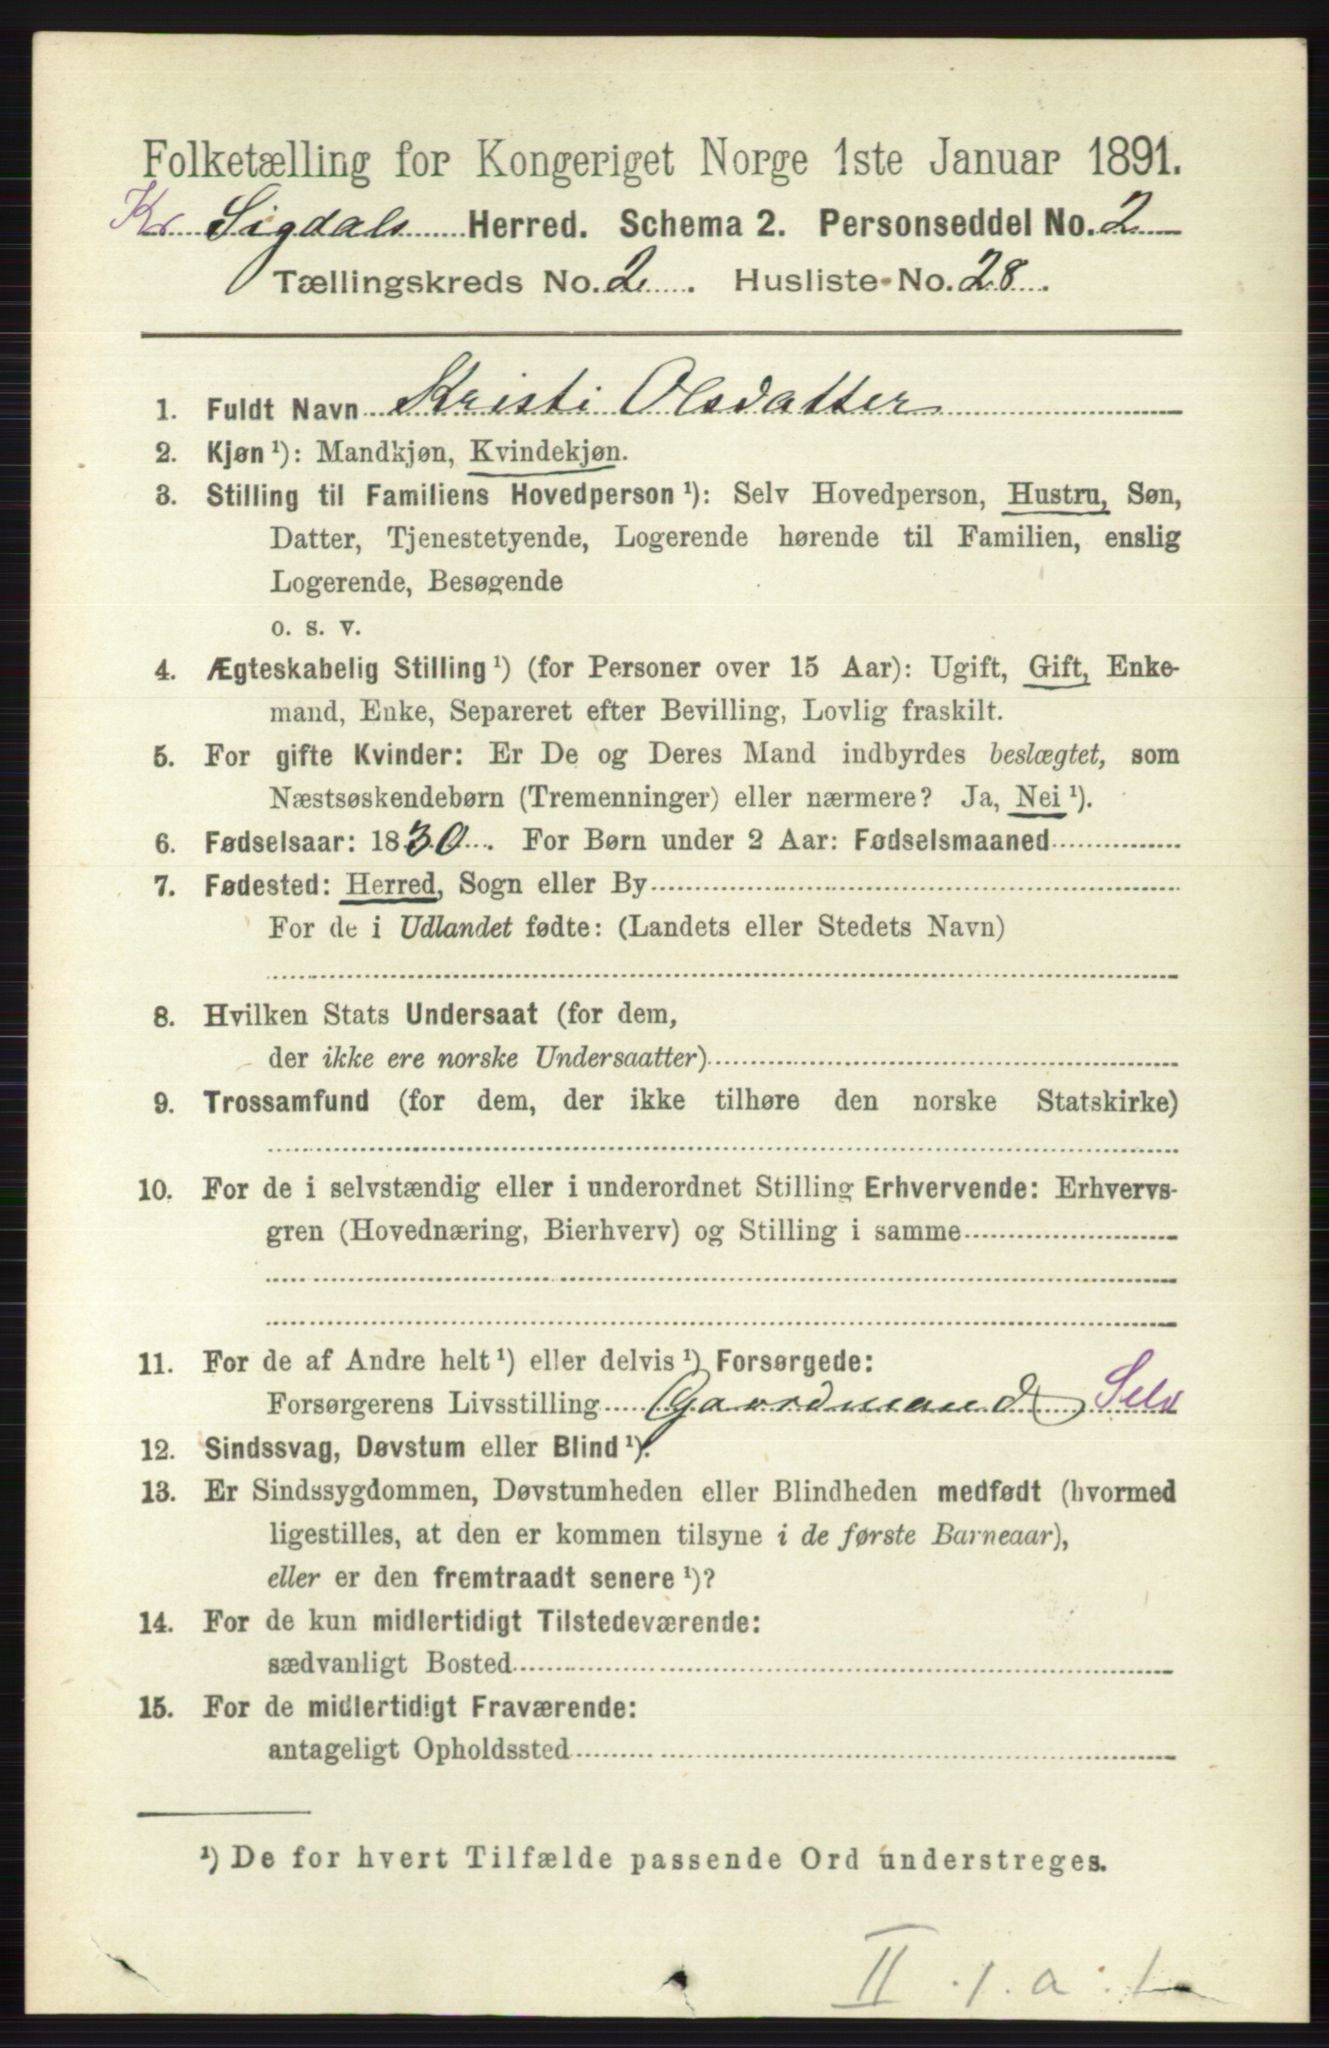 Folketælling for Kongeriget Norge 1ste Januar 1891.
Kr. Sigdals Herred. Schema 2. Personseddel No. 2
Tællingskreds No. 2. Husliste-No. 28.
1. Fuldt Navn Kristi Olsdatter
2. Kjøn ¹): Mandkjøn, Kvindekjøn.
3. Stilling til Familiens Hovedperson ¹): Selv Hovedperson, Hustru, Søn,
Datter, Tjenestetyende, Logerende hørende til Familien, enslig
Logerende, Besøgende
o. s. v.
4. Ægteskabelig Stilling ¹) (for Personer over 15 Aar): Ugift, Gift, Enke-
mand, Enke, Separeret efter Bevilling, Lovlig fraskilt.
5. For gifte Kvinder: Er De og Deres Mand indbyrdes beslægtet, som
Næstsøskendebørn (Tremenninger) eller nærmere? Ja, Nei ¹).
6. Fødselsaar: 1830. For Børn under 2 Aar: Fødselsmaaned
7. Fødested: Herred, Sogn eller By
For de i Udlandet fødte: (Landets eller Stedets Navn)
8. Hvilken Stats Undersaat (for dem,
der ikke ere norske Undersaatter)
9. Trossamfund (for dem, der ikke tilhøre den norske Statskirke)
10. For de i selvstændig eller i underordnet Stilling Erhvervende: Erhvervs-
gren (Hovednæring, Bierhverv) og Stilling i samme
11. For de af Andre helt ¹) eller delvis ¹) Forsørgede:
Forsørgerens Livsstilling Gaardmand Selv
12. Sindssvag, Døvstum eller Blind ¹).
13. Er Sindssygdommen, Døvstumheden eller Blindheden medfødt (hvormed
ligestilles, at den er kommen tilsyne i de første Barneaar),
eller er den fremtraadt senere ¹)?
14. For de kun midlertidigt Tilstedeværende:
sædvanligt Bosted
15. For de midlertidigt Fraværende:
antageligt Opholdssted
¹) De for hvert Tilfælde passende Ord understreges.
II. 1. a. 1